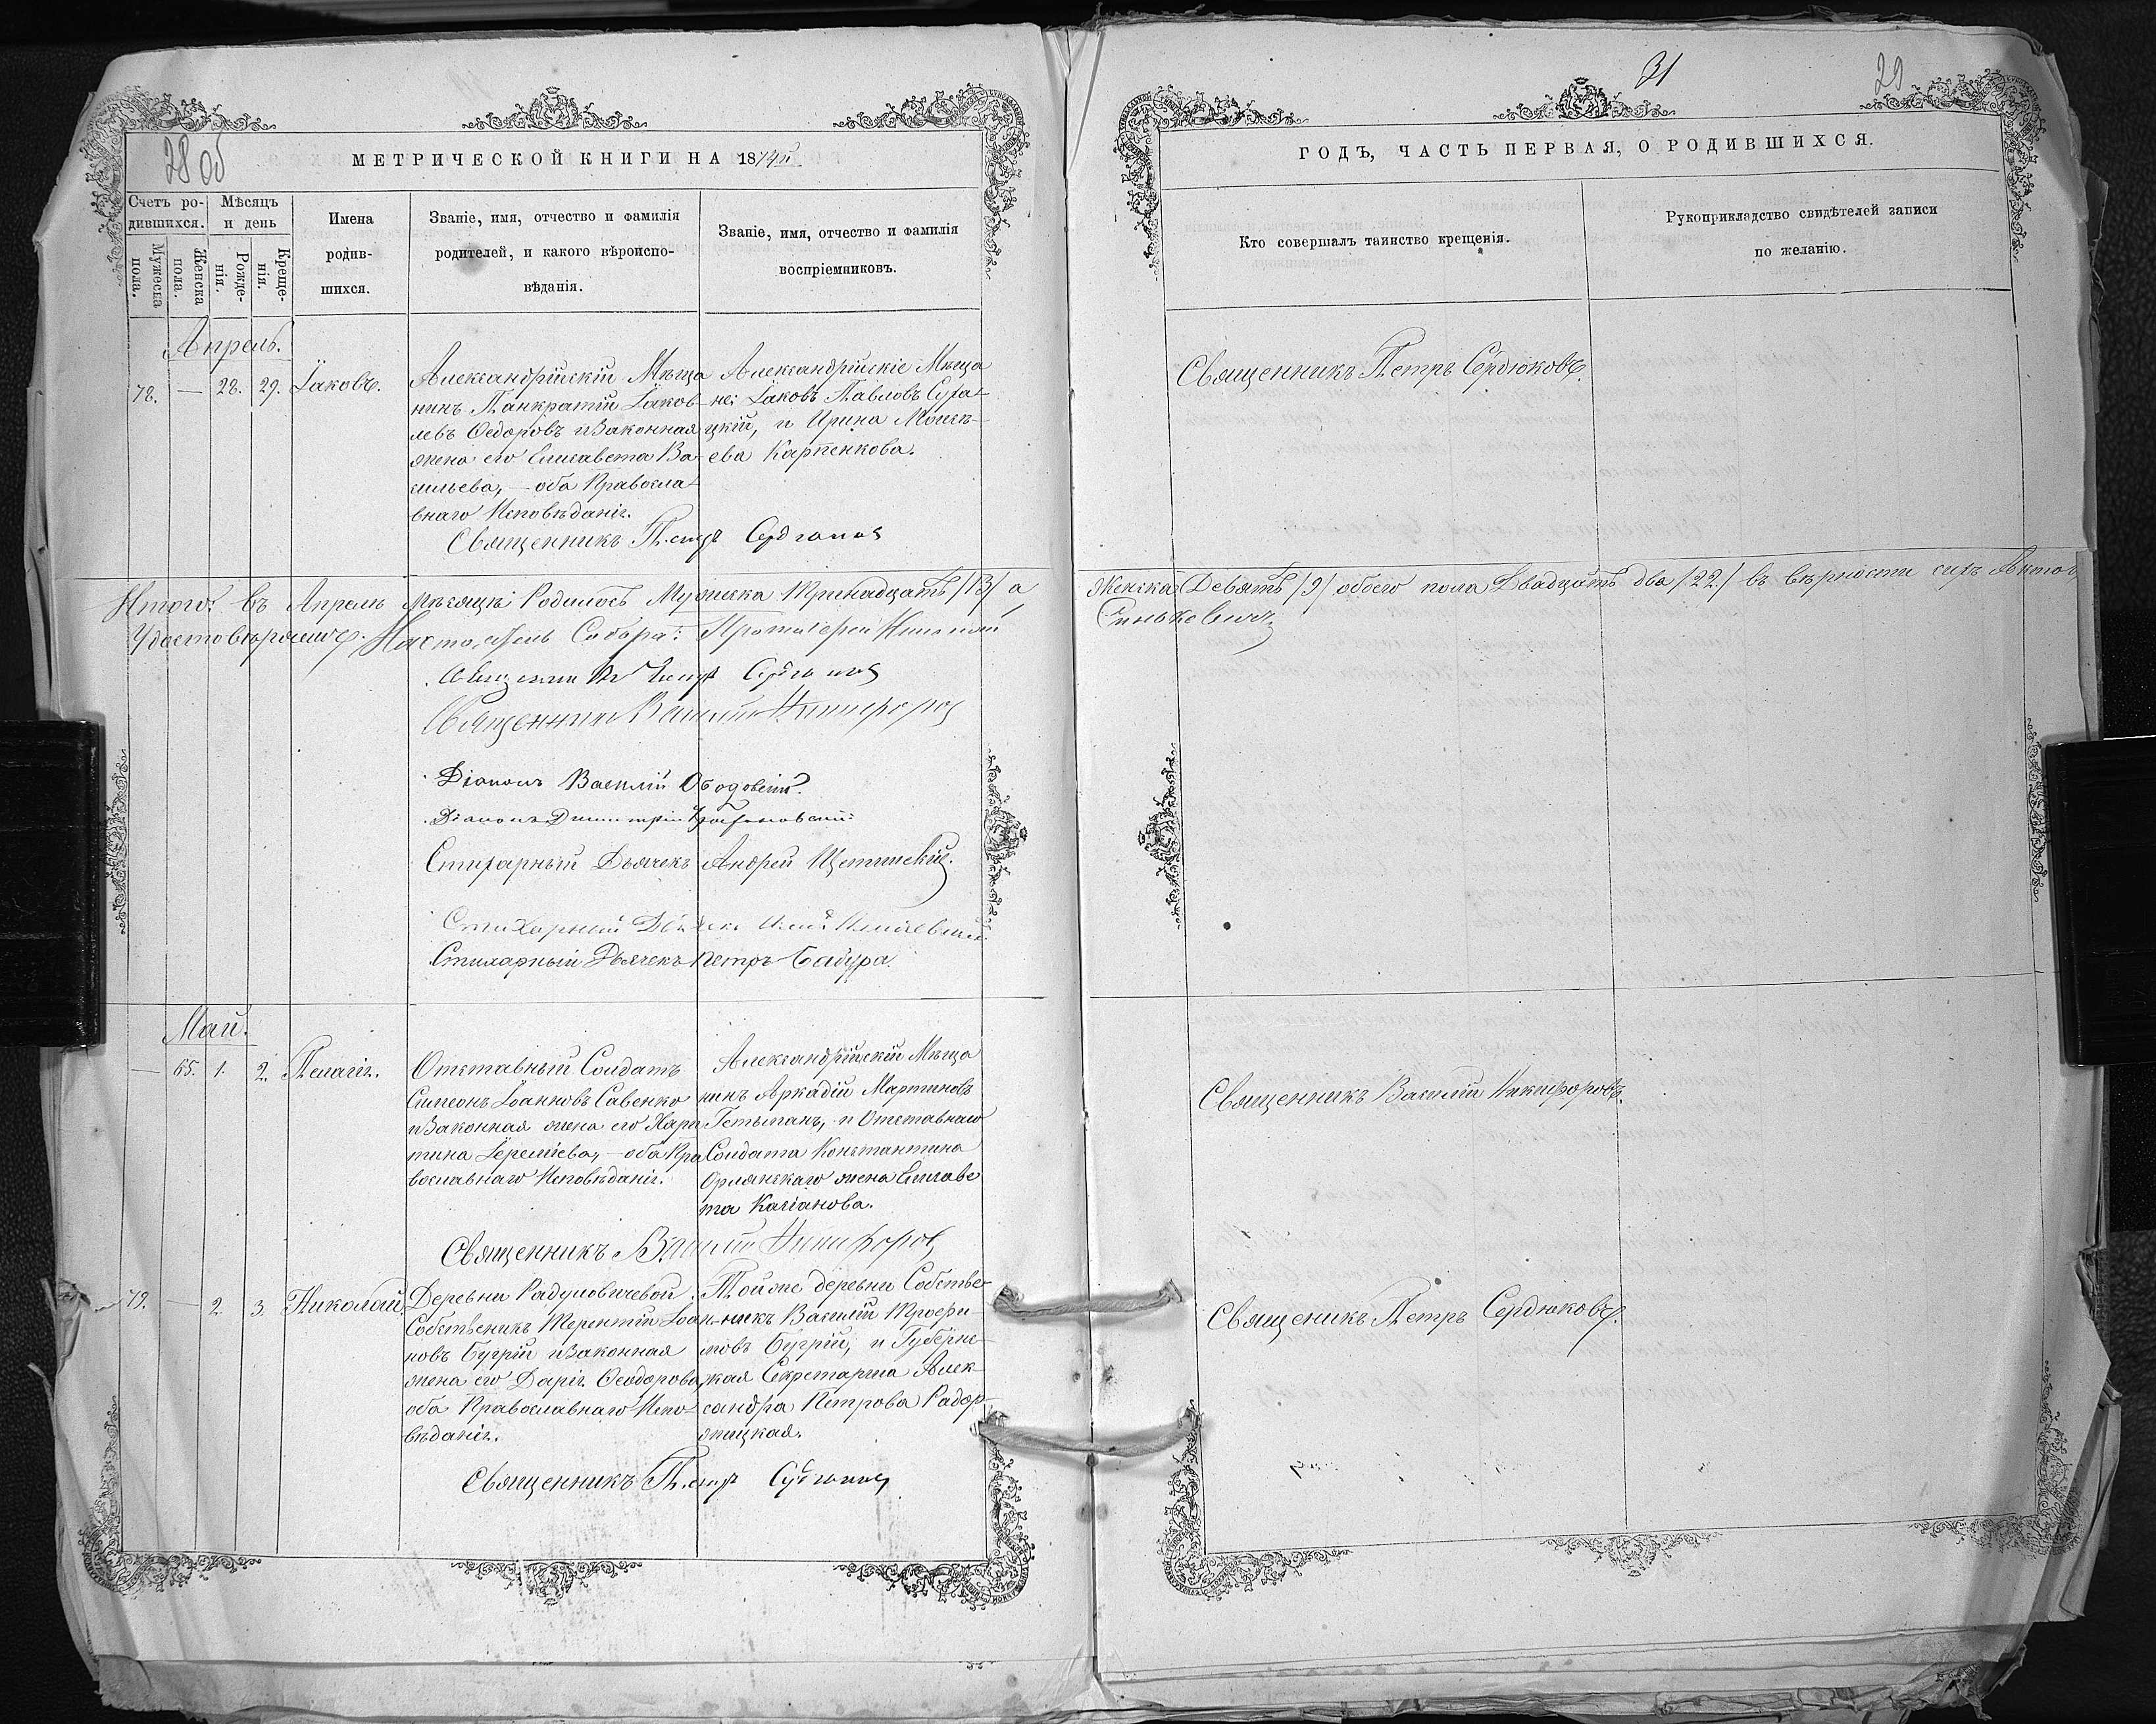 28 об
МЕТРИЧЕСКОЙ КНИГИ НА 1874й
Счетъ ро-
дившихся.
Мужеска
полъ.
Женска
пола.
Мѣсяцъ
и день
Рожде-
нія.
Креще-
нія.
Имена
родив-
шихся.
Званіе, имя, отчество и фамилія
родителей, и какого вѣроиспо-
вѣданія.
Званіе, имя, отчество и фамилія
воспріемниковъ.
Апрель.
78. — 28. 29. Іаковъ.
Александрійскій Мѣща
нинъ Панкратій Іаков-
левъ Ѳедоровъ и Законная
жена его Елисавета Ва-
сильева, — оба Правосла
внаго Исповѣданія.
Александрійскіе Мѣща
не: Іаковъ Павловъ
цкій, и Ирина Моисѣ-
ева Карпенкова.
Священникъ Петръ Сердюковъ
Итого: въ Апрелѣ мѣсяцѣ Родилось Мужеска Тринадцать /13/ а
Удостовѣряемъ: Настоятель Собора: Протоіерей Николай
Священникъ Петръ Сердюковъ
Священникъ Василій Никифоровъ
Діаконъ Василій Ободовскій.
Діаконъ Димитрій
Стихарный Дьячекъ Андрей Щетинскій.
Стихарный Дьячекъ
Стихарный Дьячекъ Петръ Бабура.
Май.
— 65. 1. 2. Пелагія.
Отставный Солдатъ
Симеонъ Іоанновъ Савенко
и Законная жена его Хари
тина Іереміева, — оба Пра
вославнаго Исповѣданія.
Александрійскій Мѣща
нинъ Аркадій Мартиновъ
Гетьманъ, и Отставнаго
Солдата Константина
Орлянскаго жена Елисаве
та Касіанова.
Священникъ Василій Никифоровъ
79. — 2. 3. Николай.
Деревни Радуловичевой
Собственикъ Терентій Іоан-
новъ Бугрій и Законная
жена его Дарія Ѳеодорова,
оба Православнаго Испо-
вѣданія.
Той же деревни Собстве-
никъ Василій Трофи-
мовъ Бугрій, и Губерн-
ская Секретарша Алек-
сандра Петрова Радор-
жицкая.
Священникъ Петръ Сердюковъ
31
29
ГОДЪ, ЧАСТЬ ПЕРВАЯ, О РОДИВШИХСЯ.
Кто совершалъ таинство крещенія.
Рукоприкладство свидѣтелей записи
по желанію.
Священникъ Петръ Сердюковъ.
Женска Девять /9/ обоего пола Двадцать два /22/ въ вѣрности сихъ Актовъ
Синькевичъ
Священникъ Василій Никифоровъ.
Священикъ Петръ Сердюковъ.